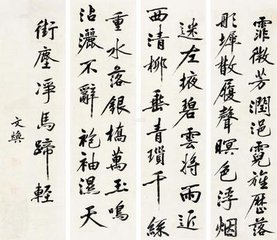 霏微芳潤浥霓旌歷落
彤墀散履聲暝色浮烟
迷左掖碧雲將雨近
西清柳垂青瑣千絲
重水落銀橋萬玉鳴
沾灑不辭袍袖濕天
街塵凈馬蹄輕
文